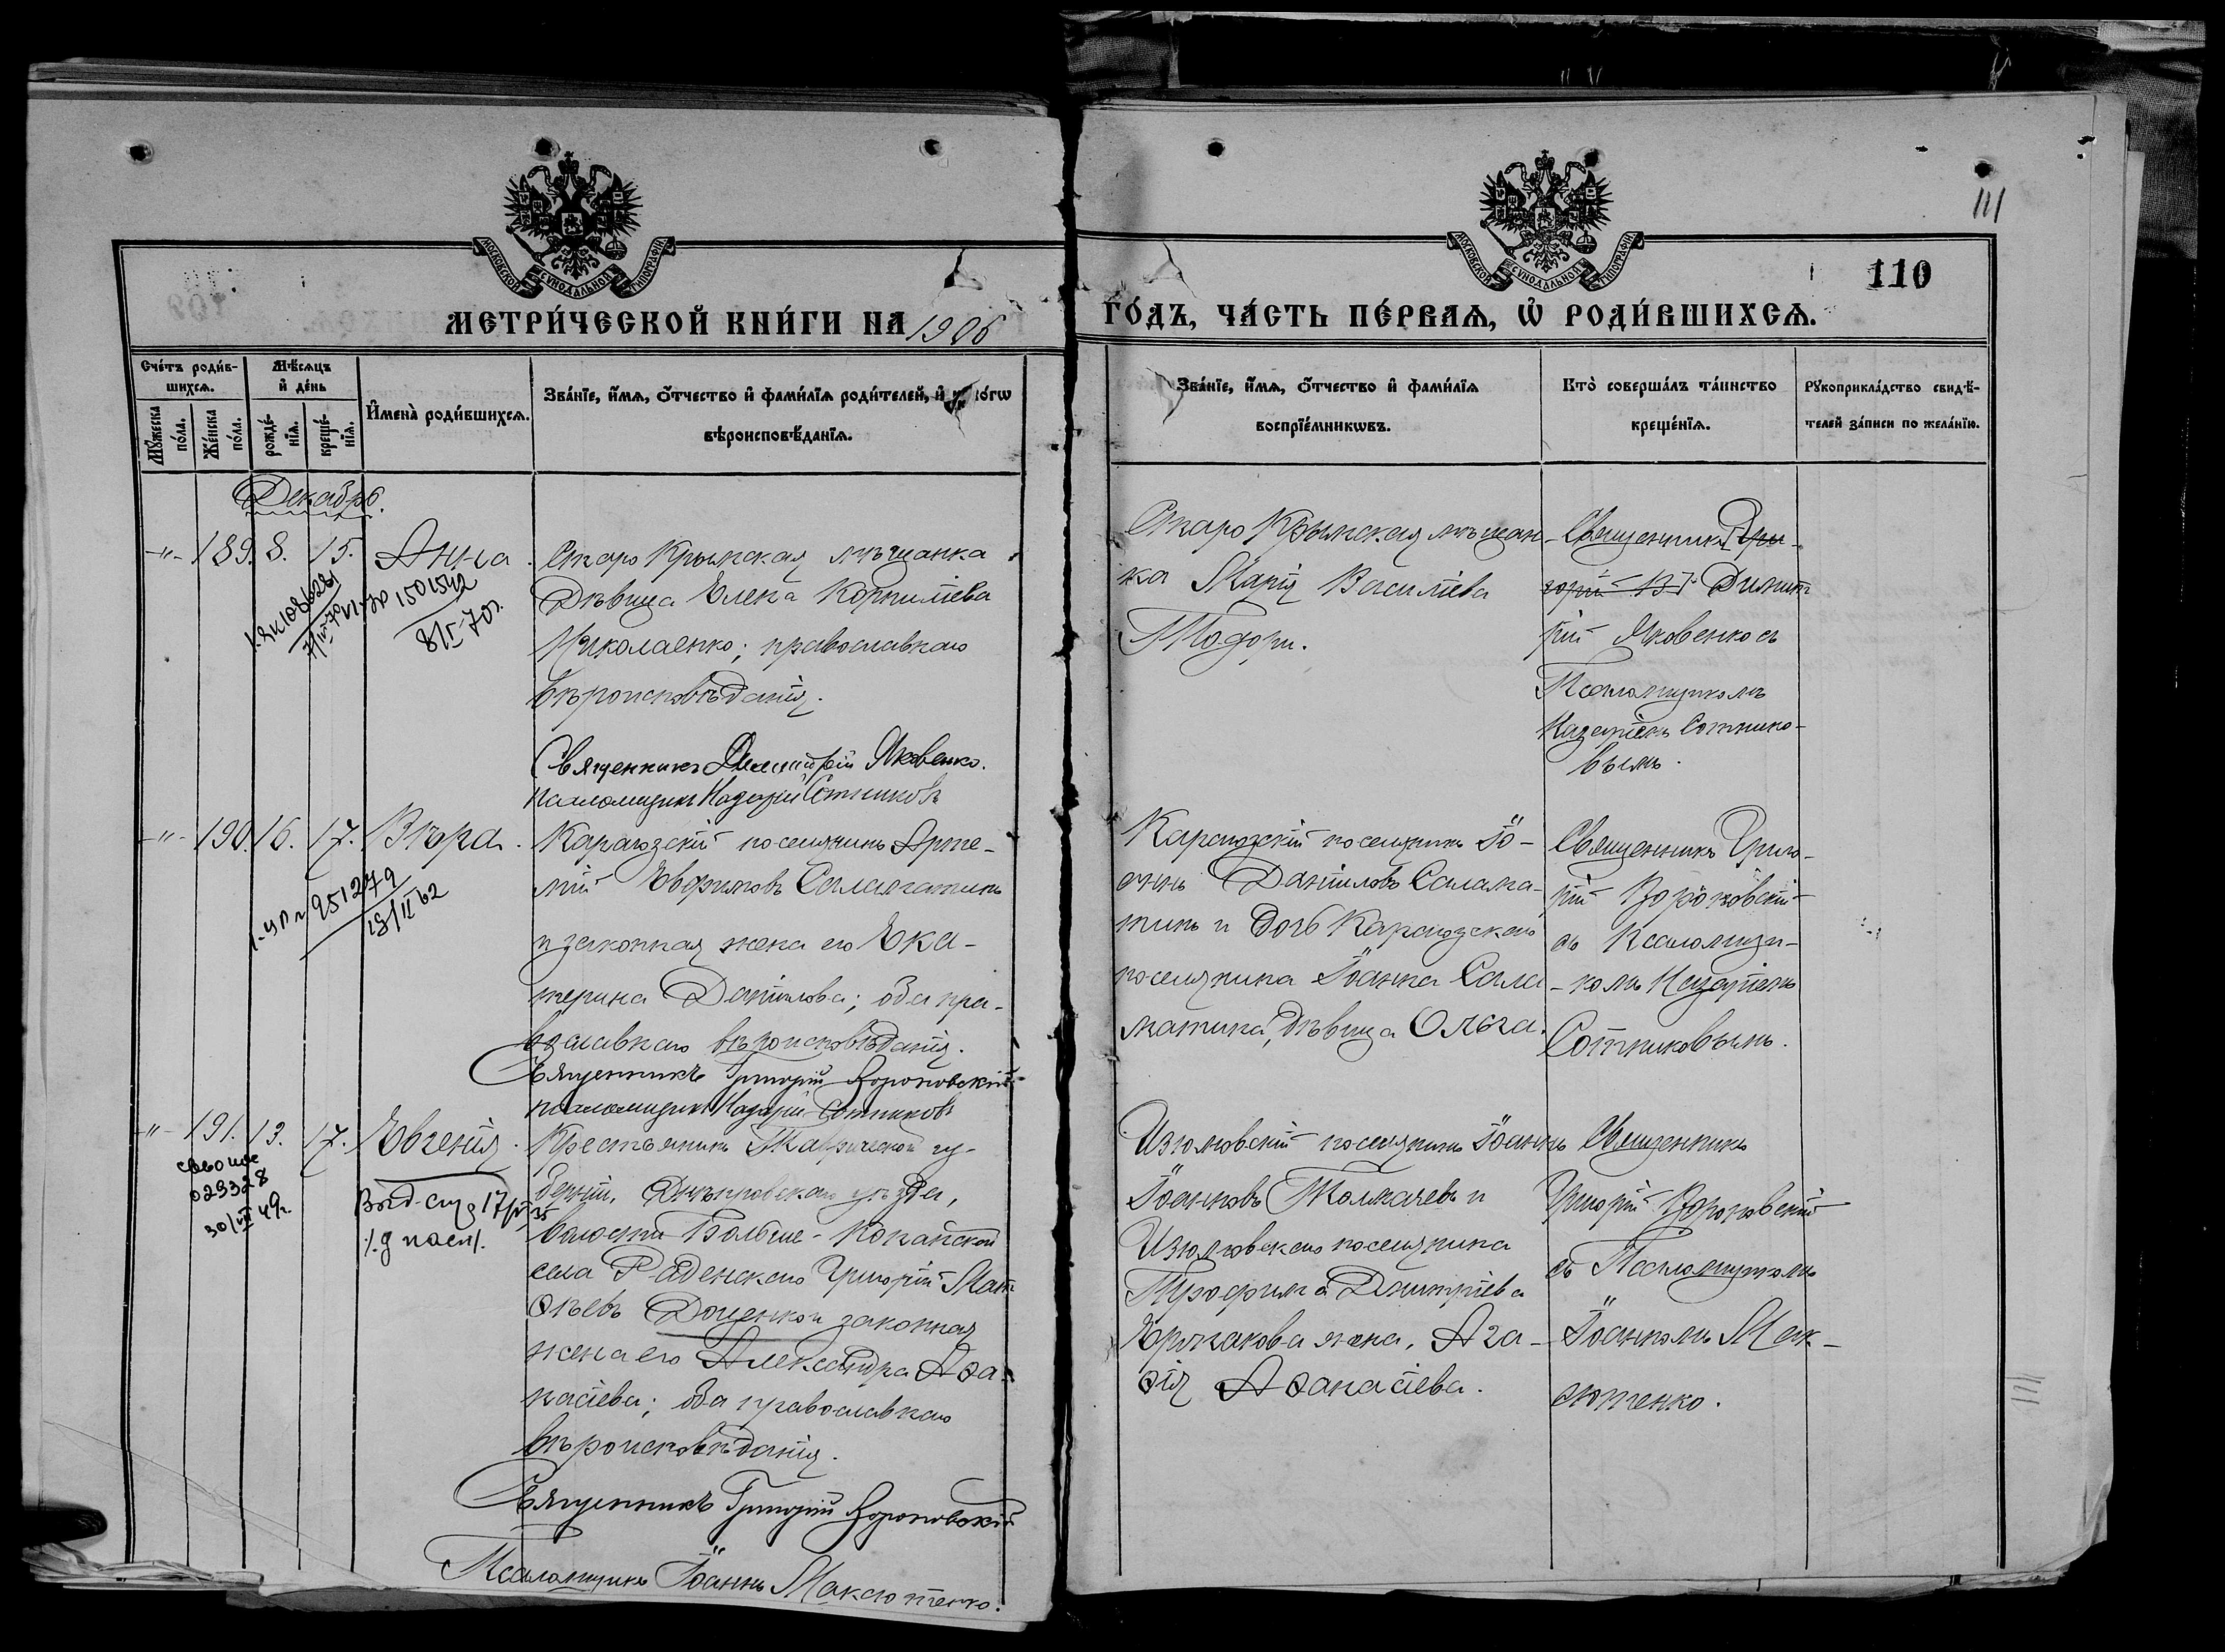 111
110
МОСКОВСКОЙ СѴНОДАЛЬНОЙ ТИПОГРАФІИ
МОСКОВСКОЙ СѴНОДАЛЬНОЙ ТИПОГРАФІИ
МЕТРИ́ЧЕСКОЙ КНИ́ГИ НА 1906
ГО́ДЪ, ЧА́СТЬ ПЕ́РВАѦ, Ѡ҆ РОДИ́ВШИХСѦ.
Сче́тъ роди́в-
шихсѧ.
Мꙋ́жеска
по́ла.
Же́нска
по́ла.
Мѣ́сѧцъ
и҆ де́нь
рожде́-
нїѧ.
креще́-
нїѧ.
И҆мена̀ роди́вшихсѧ.
Зва́нїе, и҆́мѧ, ѻ҆́тчество и҆ фами́лїѧ роди́телей, и҆
вѣроисповѣ́данїѧ.
Зва́нїе, и҆́мѧ, ѻ҆́тчество и҆ фами́лїѧ
воспрїе́мникѡвъ.
Кто̀ соверша́лъ та́инство
креще́нїѧ.
Рꙋкоприкла́дство свидѣ́-
телей за́писи по жела́нїю.
Декабрь.
-"- 189. 8. 15. Анна.
1501542
8/I-70г.
Старо Крымская мѣщанка
Дѣвица Елена Корнилиева
Николаенко; православнаго
вѣроисповѣданія.
Священникъ Димитрій Яковенко.
Псаломщикъ Назарій Сотниковъ
Старо Крымская мѣщан-
ка Марія Василіева
Тодори.
Священникъ Гри-
горій В Димит
рій Яковенко съ
Псаломщикомъ
Назаріемъ Сотнико-
вымъ.
-"- 190. 16. 17. Вѣра.
951279
13/II 62
Карагозскій поселянинъ Арте-
мій Евфимовъ Саламатинъ
и законная жена его Ека-
терина Данілова; оба пра-
вославнаго вѣроисповѣданія.
Священникъ Григорій Вороновскій
псаломщикъ Назарій Сотниковъ
Карагозскій поселянинъ Іо-
аннъ Даніиловъ Салама-
тинъ и дочь Карагозскаго
поселянина Іоанна Сала
матина, дѣвица Ольга.
Священникъ Григо-
рій Вороновскій
съ Псаломщи-
комъ Назаріемъ
Сотниковымъ.
-"- 191. 13. 17. Евгенія.
029328
30/VII 49г.
Крестьянинъ Таврической гу-
берніи, Днѣпровскаго уѣзда,
волости Больше-Копанской
села Раденскаго Григорій Мат
ѳѣевъ Доценко и законная
жена его Александра Аѳа-
насіева; оба православнаго
вѣроисповѣданія.
Священникъ Григорій Вороновскій
Псаломщикъ Іоаннъ Максютенко.
Изюмовскій поселянинъ Іоаннъ
Іоанновъ Толмачевъ и
Изюмовскаго поселянина
Трофима Димитріева
жена, Ага-
ѳія Аѳанасіева.
Священникъ
Григорій Вороновскій
съ Псаломщикомъ
Іоанномъ Мак-
сютенко.